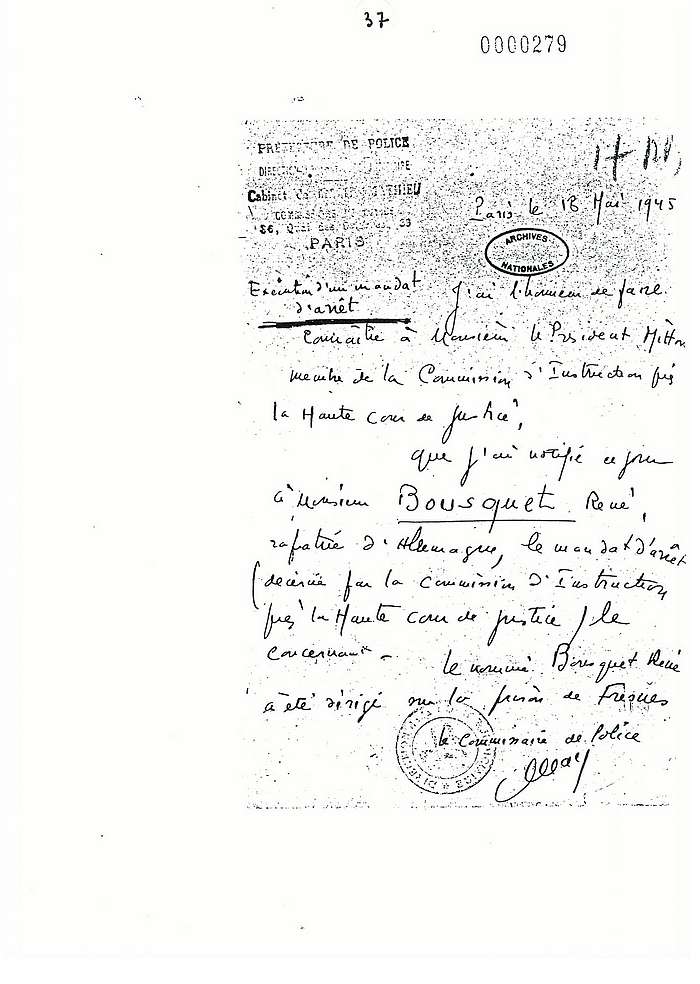 37
0000279
PRÉFECTURE DE POLICE
Cabinet
PARIS
Paris le 18 Mai 1945
ARCHIVES
NATIONALES
Exécution d'un mandat
d'arrêt
J'ai l'honneur de faire
connaître à Monsieur le Président Mitton
membre de la Commission d'Instruction près
la Haute Cour de Justice,
que j'ai notifié ce jour
à Monsieur Bousquet René,
rapatrié d'Allemagne, le mandat d'arrêt
(décerné par la Commission d'Instruction
près la Haute Cour de Justice) le
concernant -
Le nommé Bousquet René
a été dirigé sur la prison de Fresnes
Le Commissaire de Police